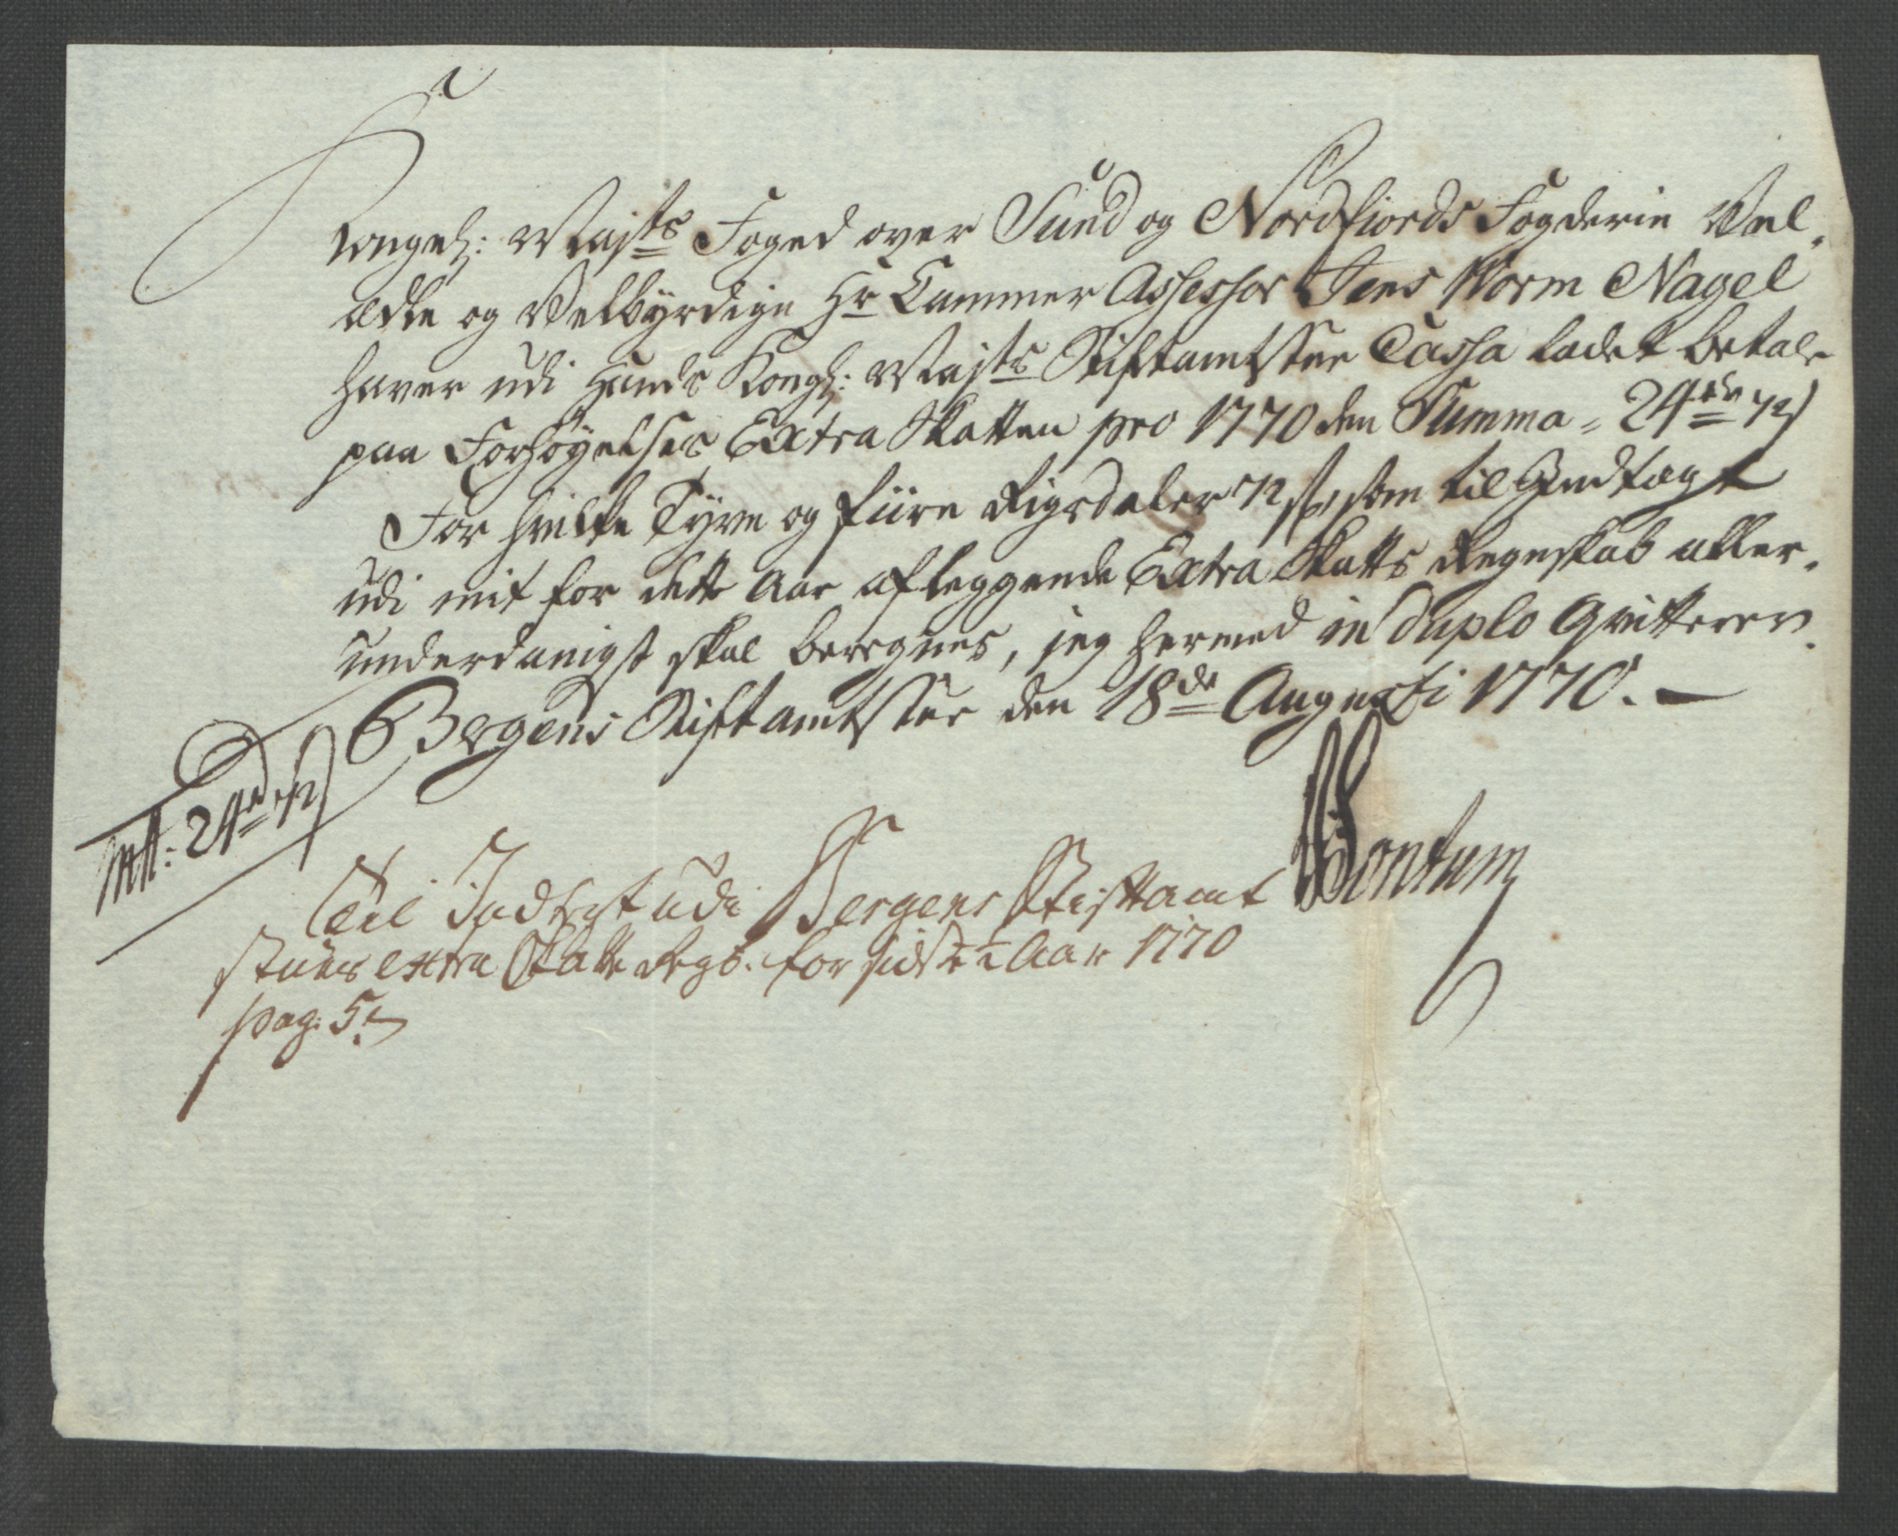 Kongel: Maj:ts Foged over Sund og Nordfiords Fogderie Vel,
ædle og Velbyrdige Hr Cammer Assessor Jens Worm Nagel
haver udi Hands Kongl: Maj:ts Stiftamtstue Cassa ladet betale
paa Forhøyelses Extra Skatten pro 1770 den Summa = 24 rdr 72 s
For hvilke Tyve og fiire Rigsdaler 72 s, som til Indtægt
udi mit for dette Aar aflæggende Extra Skatts Regnskab aller,
underdanigst skal beregnes, jeg hermed in duplo Qvitterer.
Bergens Stiftamtstue den 18de Augusti 1770. —
24 rd 72 s
Bontum
Til Indtegt udi Bergens Stiftamt
stues extra Skatte Regs: for sidste 1/2 Aar 1770
pag: 5.